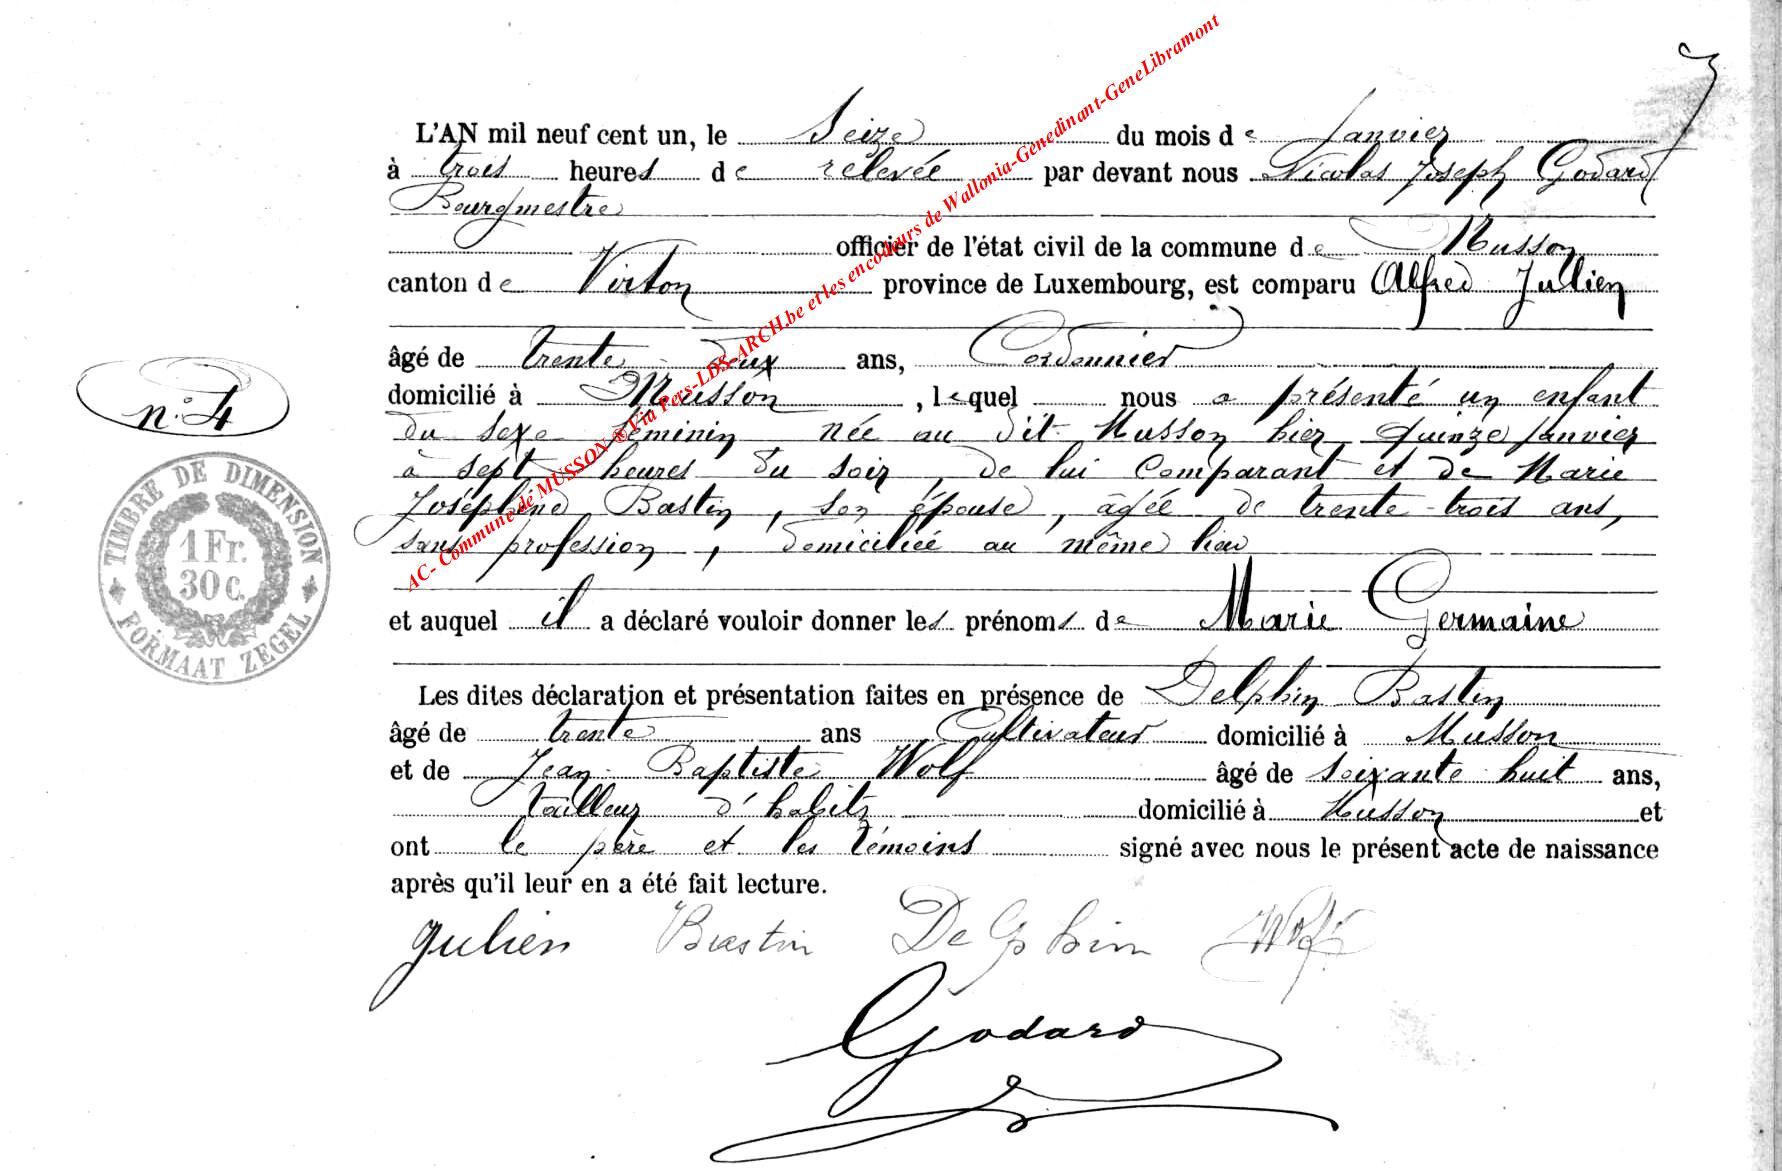 L'AN mil neuf cent un, le Seize du mois de Janvier
à trois heures de relevée par devant nous Nicolas Joseph Godard
Bourgmestre
officier de l'état civil de la commune de Musson
canton de Virton province de Luxembourg, est comparu Alfred Julien
âgé de trente-deux ans, Cordonnier
domicilié à Musson, lequel nous a présenté un enfant
du sexe féminin, née au dit Musson hier, quinze janvier
à sept heures du soir, de lui Comparant et de Marie
Joséphine Bastin, son épouse, âgée de trente-trois ans,
sans profession, domiciliée au même lieu
et auquel il a déclaré vouloir donner les prénoms de Marie Germaine
Les dites déclaration et présentation faites en présence de Delphin Bastin
âgé de trente ans Cultivateur domicilié à Musson
et de Jean Baptiste Wolf âgé de soixante huit ans,
tailleur d'habits domicilié à Musson et
ont le père et les témoins signé avec nous le présent acte de naissance
après qu'il leur en a été fait lecture.
Julien Bastin Delphin Wolf
Godard
n° 4
TIMBRE DE DIMENSION
1 Fr.
30 c.
FORMAAT ZEGEL
AC- Commune de MUSSON ® Via Pers-LDS-ARCH.be et les encodeurs de Wallonia-Genedinant-GeneLibramont